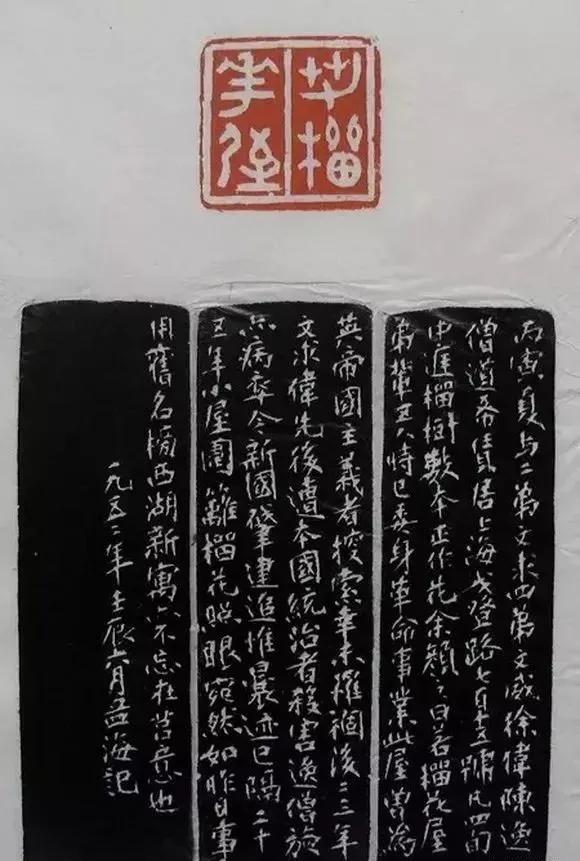 若榴
花屋
丙寅夏与二弟文求四弟文威徐偉陳逸
僧道希賃居上海戈登路七百十五號凡四間
中庭榴樹數本正作花余顏之曰若榴花屋
弟輩五人時已委身革命事業此屋曾為
英帝國主義者搜索幸未罹禍後二三年
文求偉先後遭本國統治者殺害逸僧旋
亦病卒今新國肇建追惟曩迹已隔二十
五年小屋圍籬榴花照眼宛然如昨日事
用舊名榜西湖新寓亦不忘在莒意也
一九五二年壬辰六月孟海記